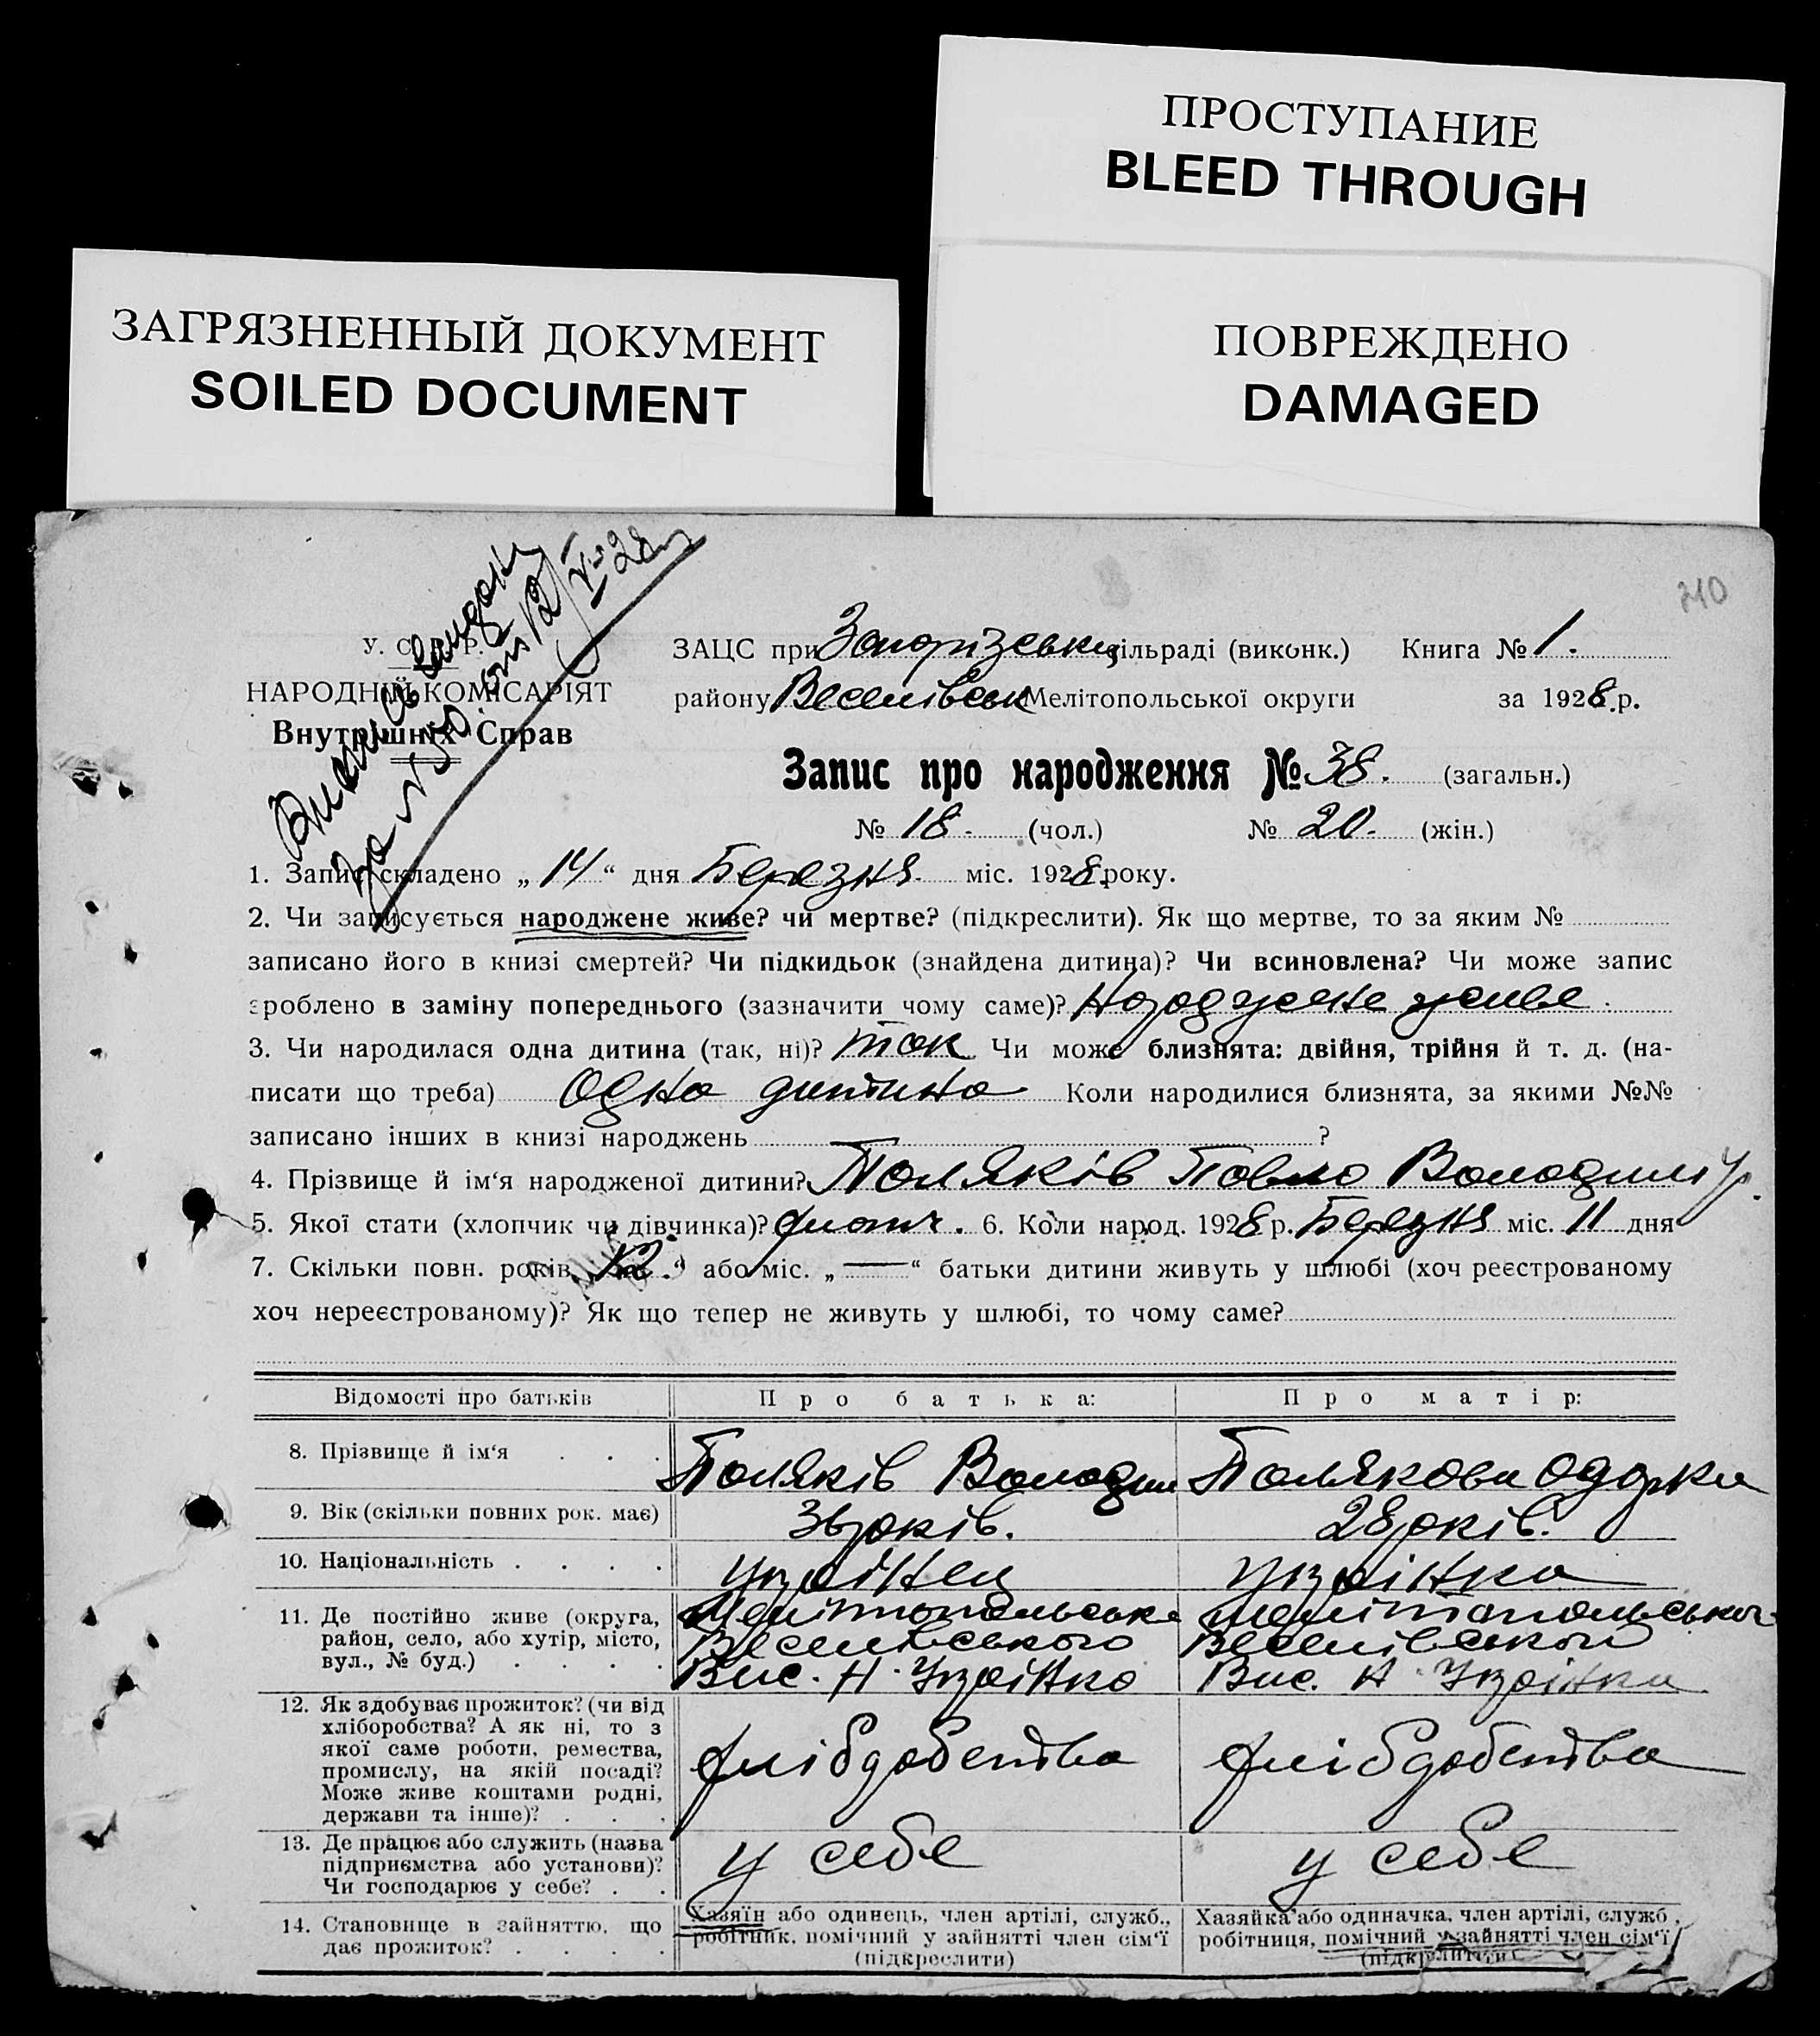 ПРОСТУПАНИЕ
BLEED THROUGH
ЗАГРЯЗНЕННЫЙ ДОКУМЕНТ
SOILED DOCUMENT
ПОВРЕЖДЕНО
DAMAGED
210
У. С. Р. Р.
НАРОДНІЙ КОМІСАРІЯТ
Внутрішніх Справ
за № 30. від 12/V-28
ЗАЦС при сільраді (виконк.) Книга № 1.
району Веселівськ Мелітопольської округи за 1928.р.
Запис про народження № 38. (загальн.)
№ 18. (чол.) № 20. (жін.)
1. Запис складено „14“ дня Березня міс. 1928 року.
2. Чи записується народжене живе? чи мертве? (підкреслити). Як що мертве, то за яким №
записано його в книзі смертей? Чи підкидьок (знайдена дитина)? Чи всиновлена? Чи може запис
зроблено в заміну попереднього (зазначити чому саме)? Народжене живе.
3. Чи народилася одна дитина (так, ні)? так Чи може близнята: двійня, трійня й т. д. (на-
писати що треба) Одна дитина Коли народилися близнята, за якими №№
записано інших в книзі народжень ?
4. Прізвище й ім‘я народженої дитини? Поляків Павло Володимир.
5. Якої стати (хлопчик чи дівчинка)? хлопч. 6. Коли народ. 1928 р. Березня міс. 11 дня
7. Скільки повн. років „12.“ або міс. „—“ батьки дитини живуть у шлюбі (хоч реєстрованому
хоч нереєстрованому)? Як що тепер не живуть у шлюбі, то чому саме?
Відомості про батьків Про батька: Про матір:
8. Прізвище й ім‘я . . . Поляків Володим Полякова Одарка
9. Вік (скільки повних рок. має) 36 років. 28 років.
10. Національність . . . . українец українка
11. Де постійно живе (округа, Мелітопольська Мелітопольської
район, село, або хутір, місто, Веселівського Веселівського
вул., № буд.) . . . . Вис. Н. Україн­ка Вис. Н Українка
12. Як здобуває прожиток? (чи від
хліборобства? А як ні, то з
якої саме роботи, ремества, хлібдобства хлібдобства
промислу, на якій посаді?
Може живе коштами родні,
держави та інше)? . . .
13. Де працює або служить (назва
підприємства або установи)? у себе у себе
Чи господарює у себе? . .
14. Становище в зайняттю, що Хазяїн або одинець, член артілі, служб., Хазяйка або одиначка, член артілі, служб.,
дає прожиток? . . . . робітник, помічний у зайнятті член сім‘ї робітниця, помічний у зайнятті член сім‘ї
(підкреслити) (підкреслити)